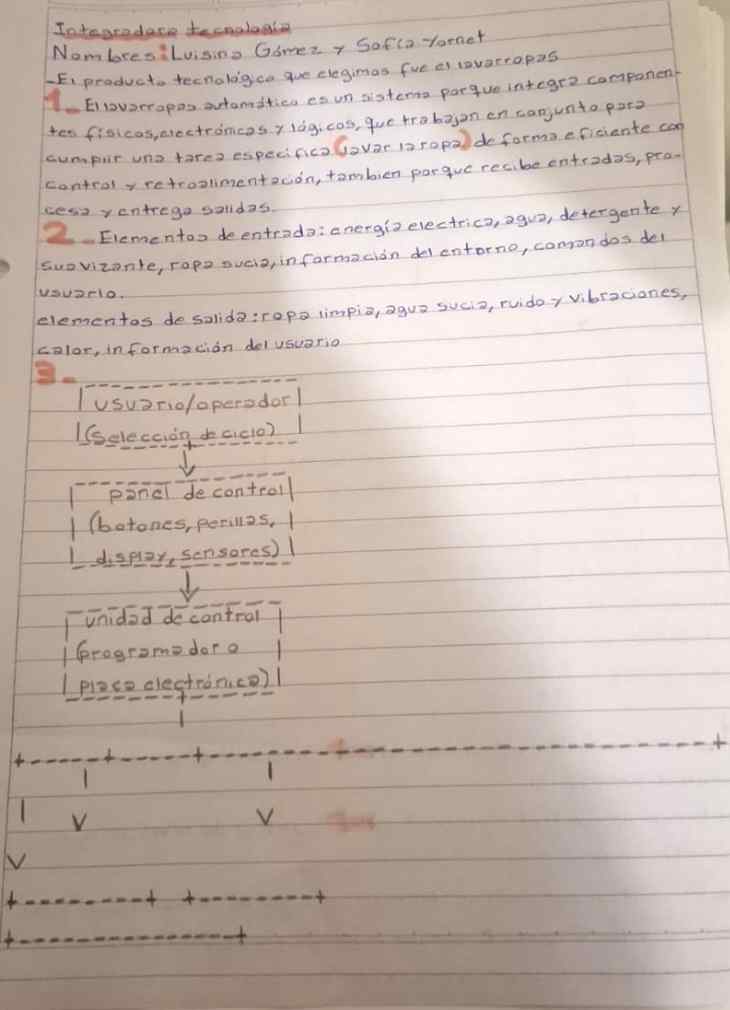 Integradora tecnología
Nombres: Luisina Gómez y Sofía Yornet
-El producto tecnológico que elegimos fue el lavarropas
1. El lavarropas automático es un sistema porque integra componen-
tes físicos, electrónicos y lógicos, que trabajan en conjunto para
cumplir una tarea especifica (lavar la ropa) de forma eficiente con
control y retroalimentación, tambien porque recibe entradas, pro-
cesa y entrega salidas.
2. Elementos de entrada: energía electrica, agua, detergente y
suavizante, ropa sucia, información del entorno, comandos del
usuario.
elementos de salida: ropa limpia, agua sucia, ruido y vibraciones,
calor, información del usuario
3.
usuario/operador
(selección de ciclo)
panel de control
(botones, perillas,
display, sensores)
unidad de control
(programador o
placa electrónica)